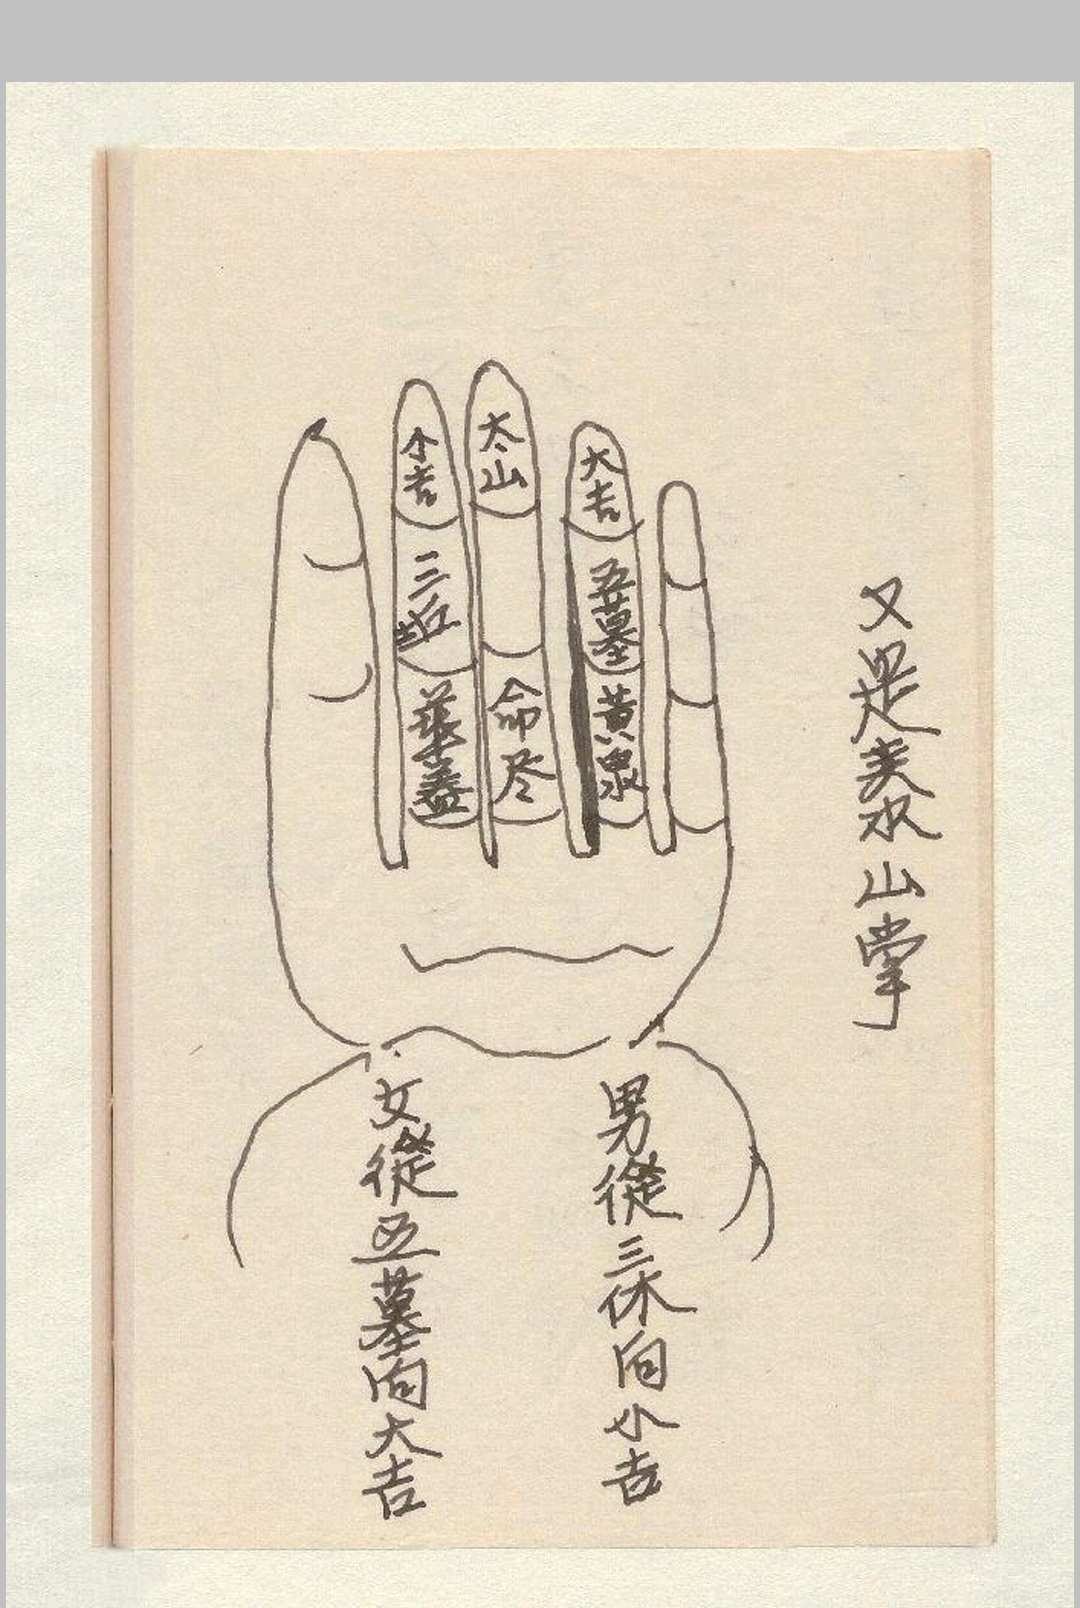 又是美水山掌
大吉
五墓
黄泉
太山
命尽
小吉
三坵
華蓋
男從三休向小吉
女從五墓向大吉